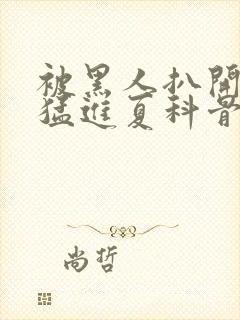 被黑人扒開
猛進夏科普
尚哲